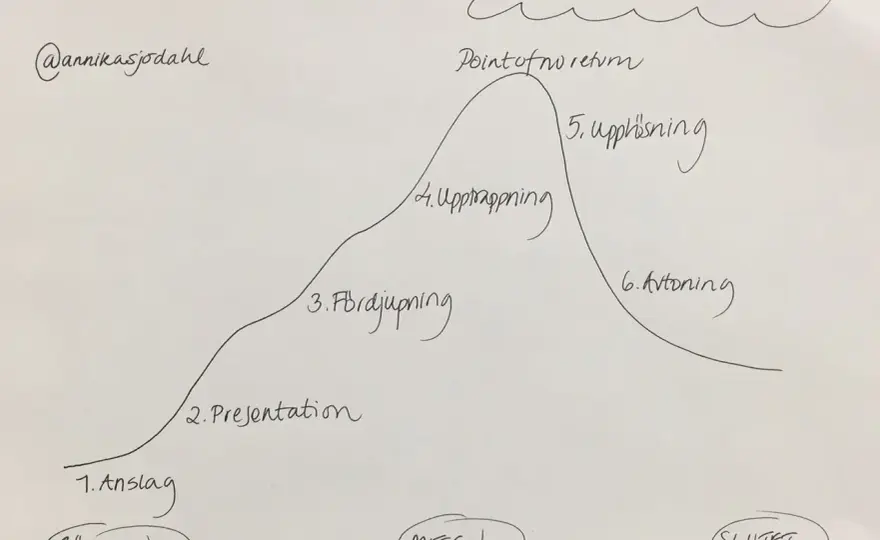 @annikasjodahl
Point of no return
5. Upplösning
4. Upptrappning
6. Avtoning
3. Fördjupning
2. Presentation
1. Anslag